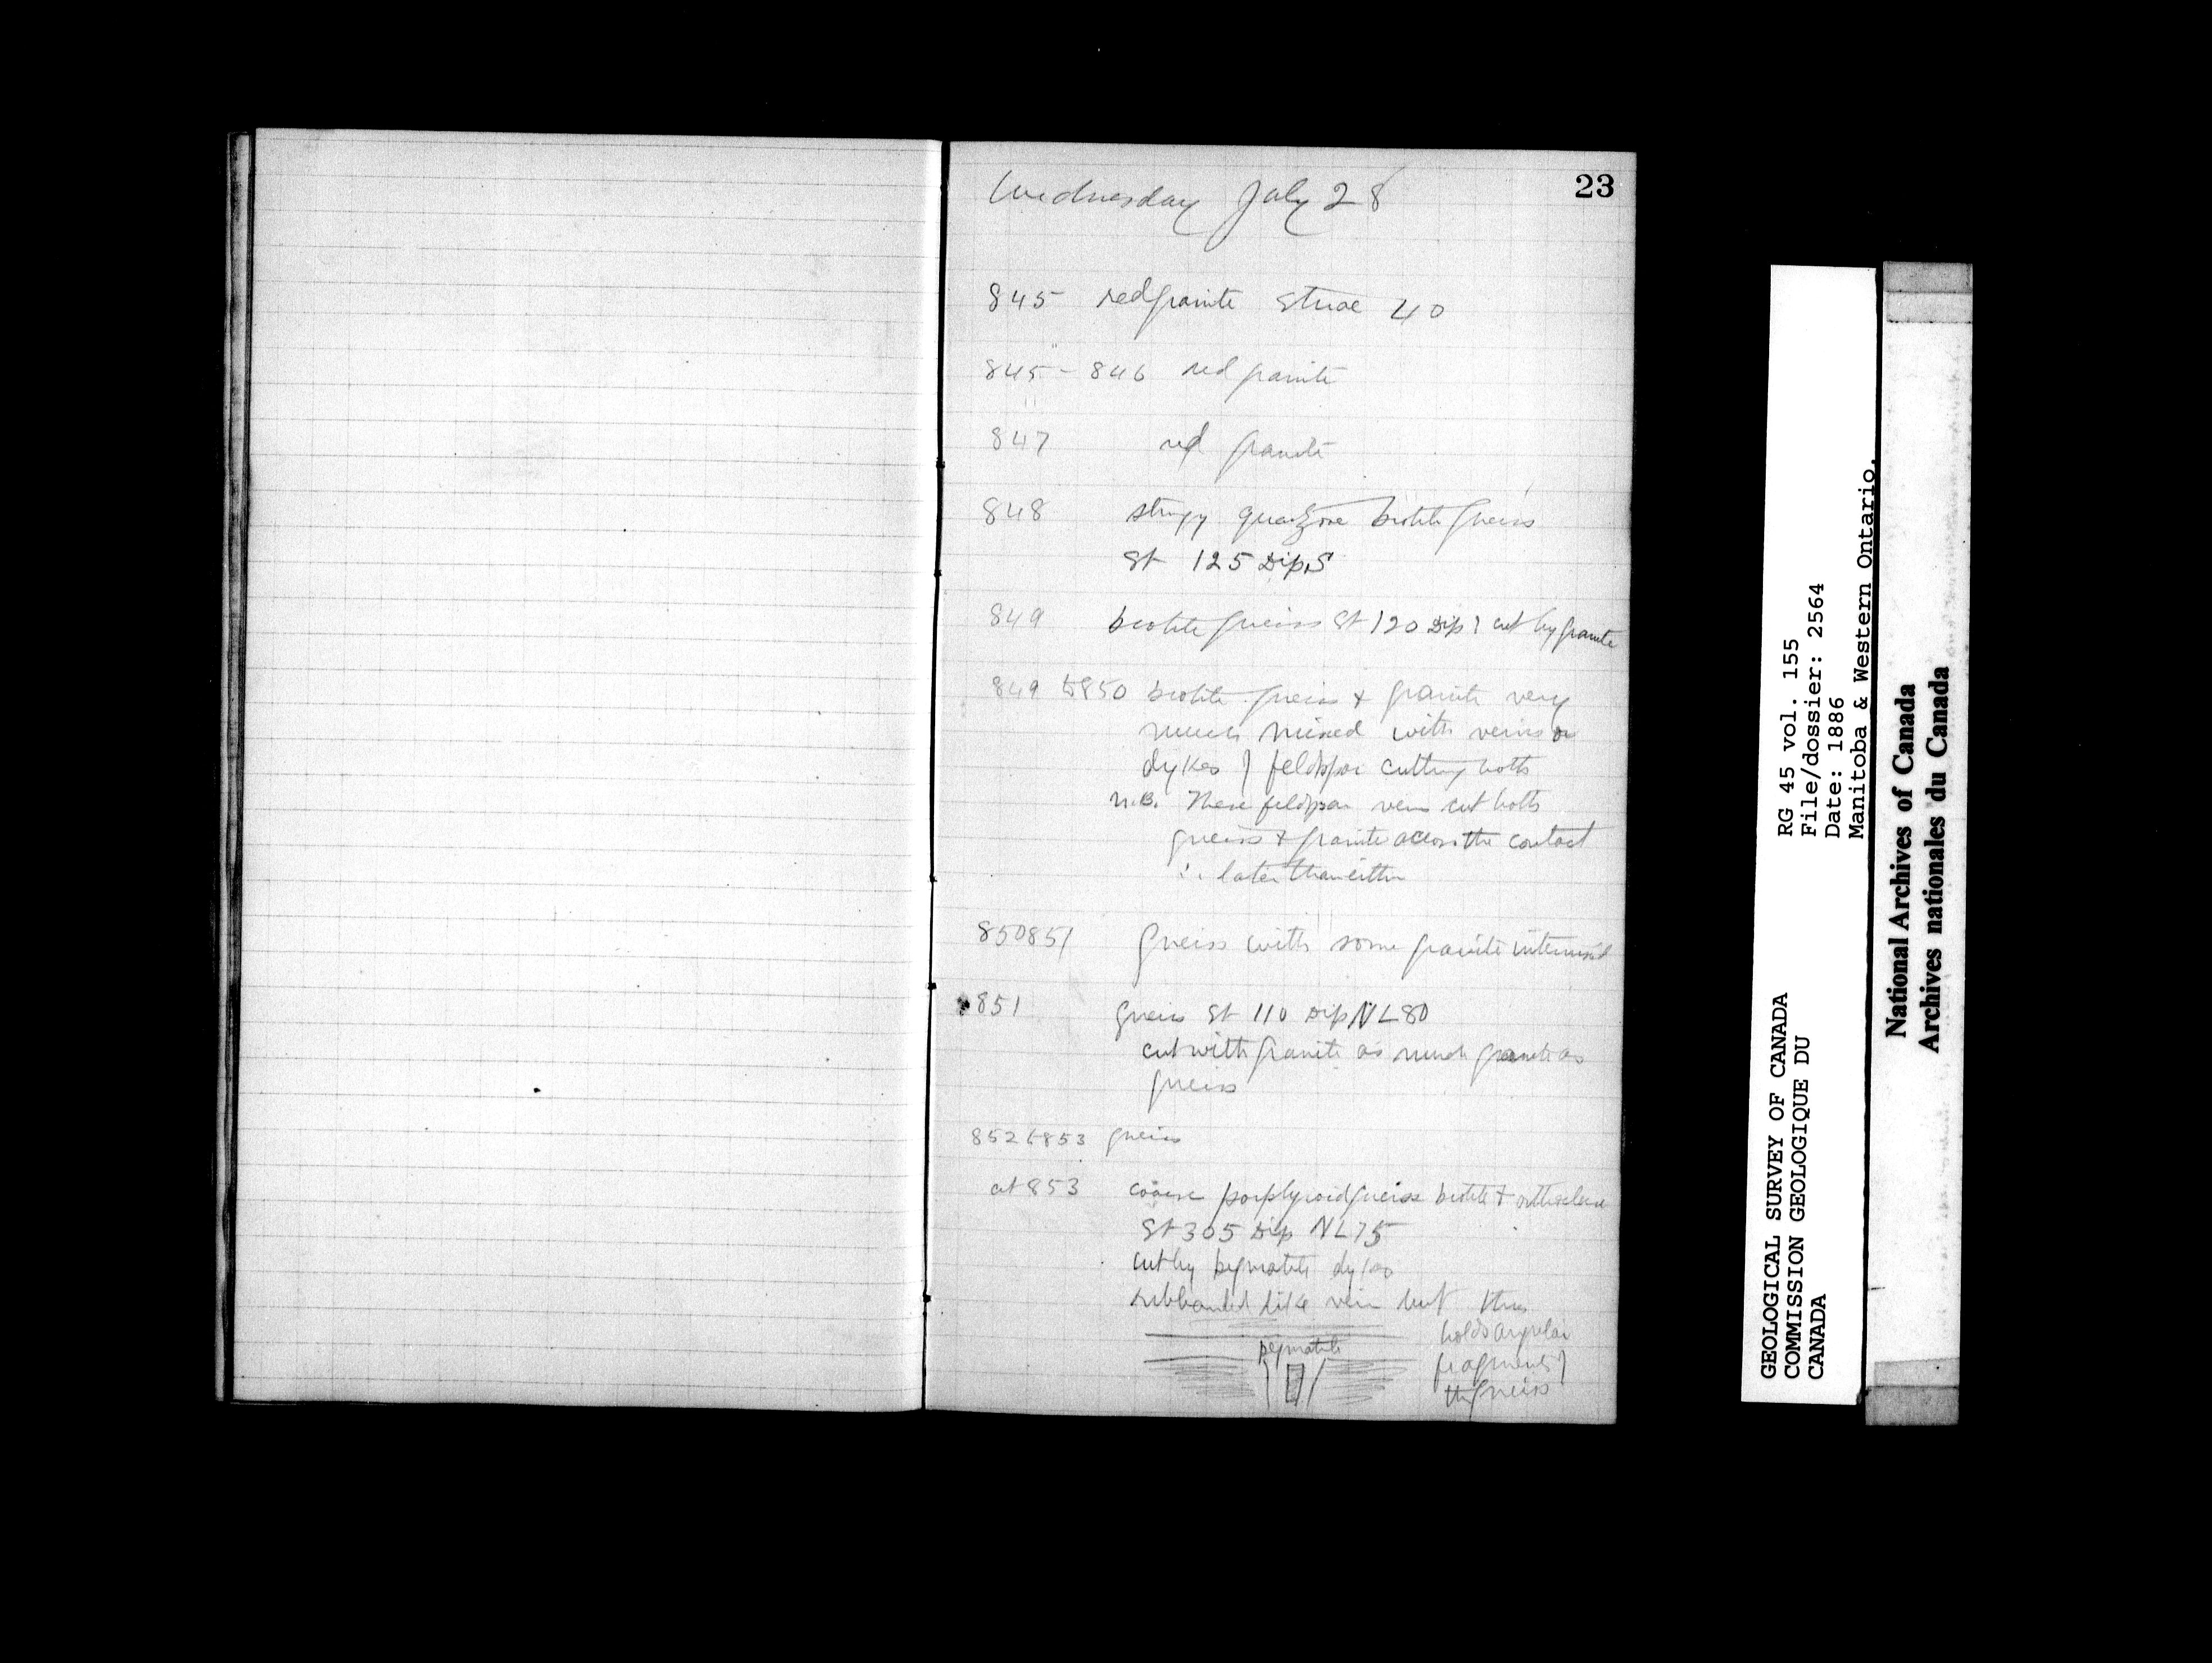 23
Wednesday July 28
845 red granite Striae 40
845 - 846 red granite
847 red granite
848 stripy quartzose biotite gneiss
St 125 Dip S
849 biotite gneiss St 120 Dip ? cut by granite
849 to 850 biotite gneiss & granite very
much mixed with veins or
dykes of feldspar cutting both
N.B. These feldspar veins cut both
gneiss & granite across the contact
∴ later than either
850 851 gneiss with some granite intermixed
851 gneiss St 110 Dip N L 80
cut with granite as much granite as
gneiss
852 to 853 gneiss
at 853 coarse porphyroid gneiss biotite & orthoclase
St 305 Dip N L 75
cut by pegmatite dykes
ribbanded like vein but thus
holds angular
pegmatite
fragments of
the gneiss
RG 45 vol. 155
File/dossier: 2564
Date: 1886
Manitoba & Western Ontario.
GEOLOGICAL SURVEY OF CANADA
COMMISSION GEOLOGIQUE DU
CANADA
National Archives of Canada
Archives nationales du Canada